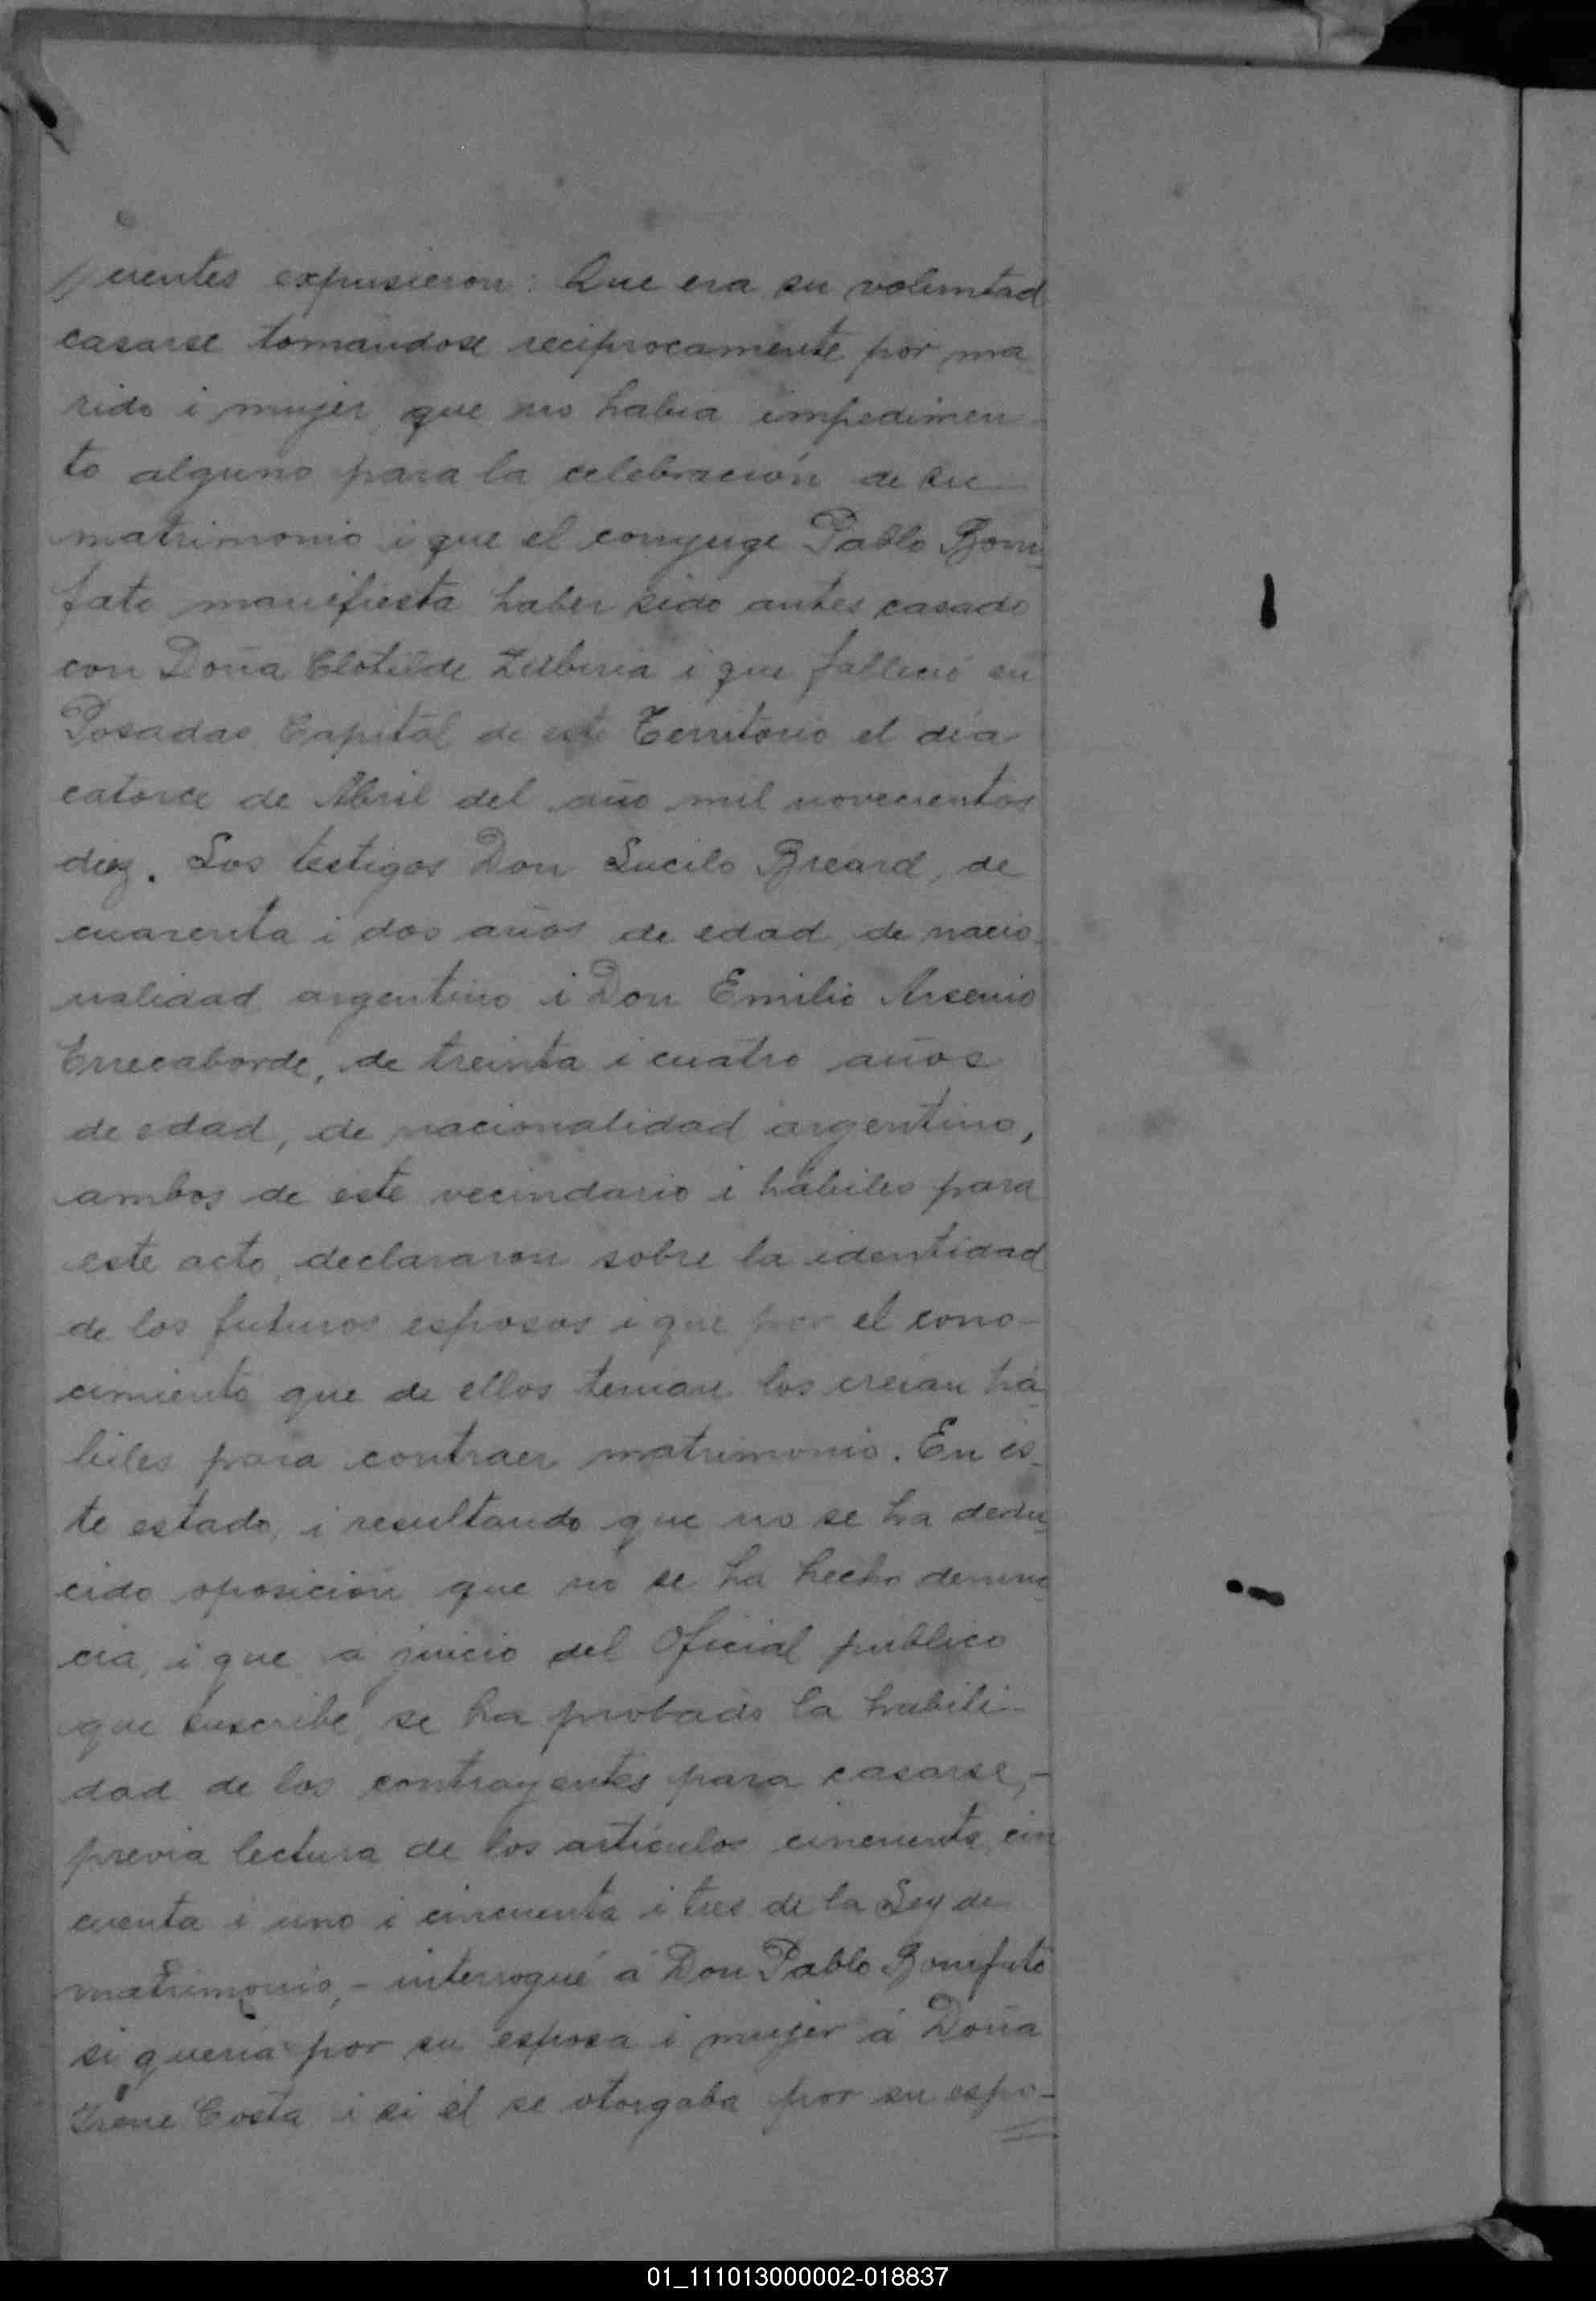 rentes expusieron: Que era su voluntad
casarse tomandose reciprocamente por ma
rido i mujer, que no habia impedimen-
to alguno para la celebración de su
matrimonio i que el conyuge Pablo Boni
fato manifiesta haber sido antes casado
con Doña Clotilde i que falleció en
Posadas Capital de este Territorio el dia
catorce de Abril del año mil novecientos
diez. Los testigos Don Lucilo Breard, de
cuarenta i dos años de edad, de nacio
nalidad argentino i Don Emilio Arsenio
Errecaborde, de treinta i cuatro años
de edad, de nacionalidad argentino,
ambos de este vecindario i hábiles para
este acto, declararon sobre la identidad
de los futuros esposos i que por el cono-
cimiento que de ellos tenian los creian há
biles para contraer matrimonio. En es-
te estado, i resultando que no se ha dedu
cido oposición que no se ha hecho denun
cia, i que á juicio del Oficial publico
que suscribe, se ha probado la habili-
dad de los contrayentes para casarse,-
previa lectura de los articulos cincuenta, cin
cuenta i uno i cincuenta i tres de la Ley de
matrimonio,- interrogué á Don Pablo Bonifato
si queria por su esposa i mujer á Doña
Irene Costa i si él se otorgaba por su espo-
01_111013000002-018837